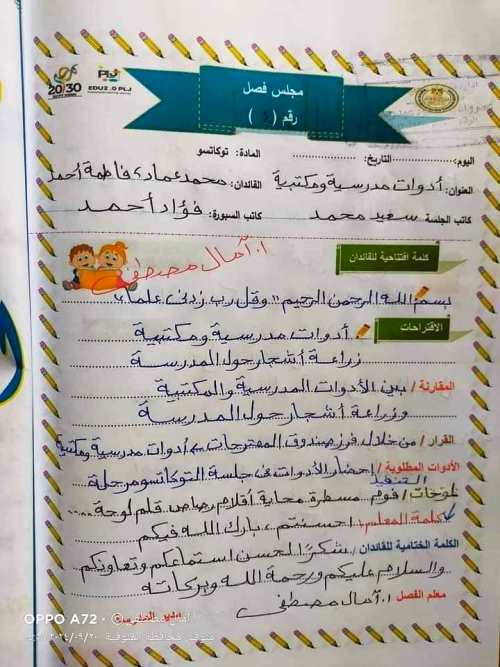 20/30
EDU2.0 PLJ
مجلس فصل
رقم ( )
اليوم: التاريخ: المادة: توكاتسو
العنوان: أدوات مدرسية ومكتبية القائدان: محمد عماد، فاطمة أحمد
كاتب الجلسة سعيد محمد كاتب السبورة: فؤاد أحمد
أ. آمال مصطفى
كلمة افتتاحية للقائدان
بسم الله الرحمن الرحيم "وقل رب زدني علما"
الاقتراحات
أدوات مدرسية ومكتبية
زراعة أشجار حول المدرسة
المقارنة / بين الأدوات المدرسية والمكتبية
وزراعة أشجار حول المدرسة
القرار / من خلال فرز صندوق المقترحات أدوات مدرسية ومكتبية
الأدوات المطلوبة / إحضار الأدوات فى جلسة التوكاتسو مرحلة
التنفيذ
لوحات / فوم مسطرة محاية أقلام رصاص قلم لوحة
كلمة المعلم: أحسنتم، بارك الله فيكم
الكلمة الختامية للقائدان / شكرًا لحسن استماعكم وتعاونكم
والسلام عليكم ورحمة الله وبركاته
معلم الفصل أ. آمال مصطفى
OPPO A72